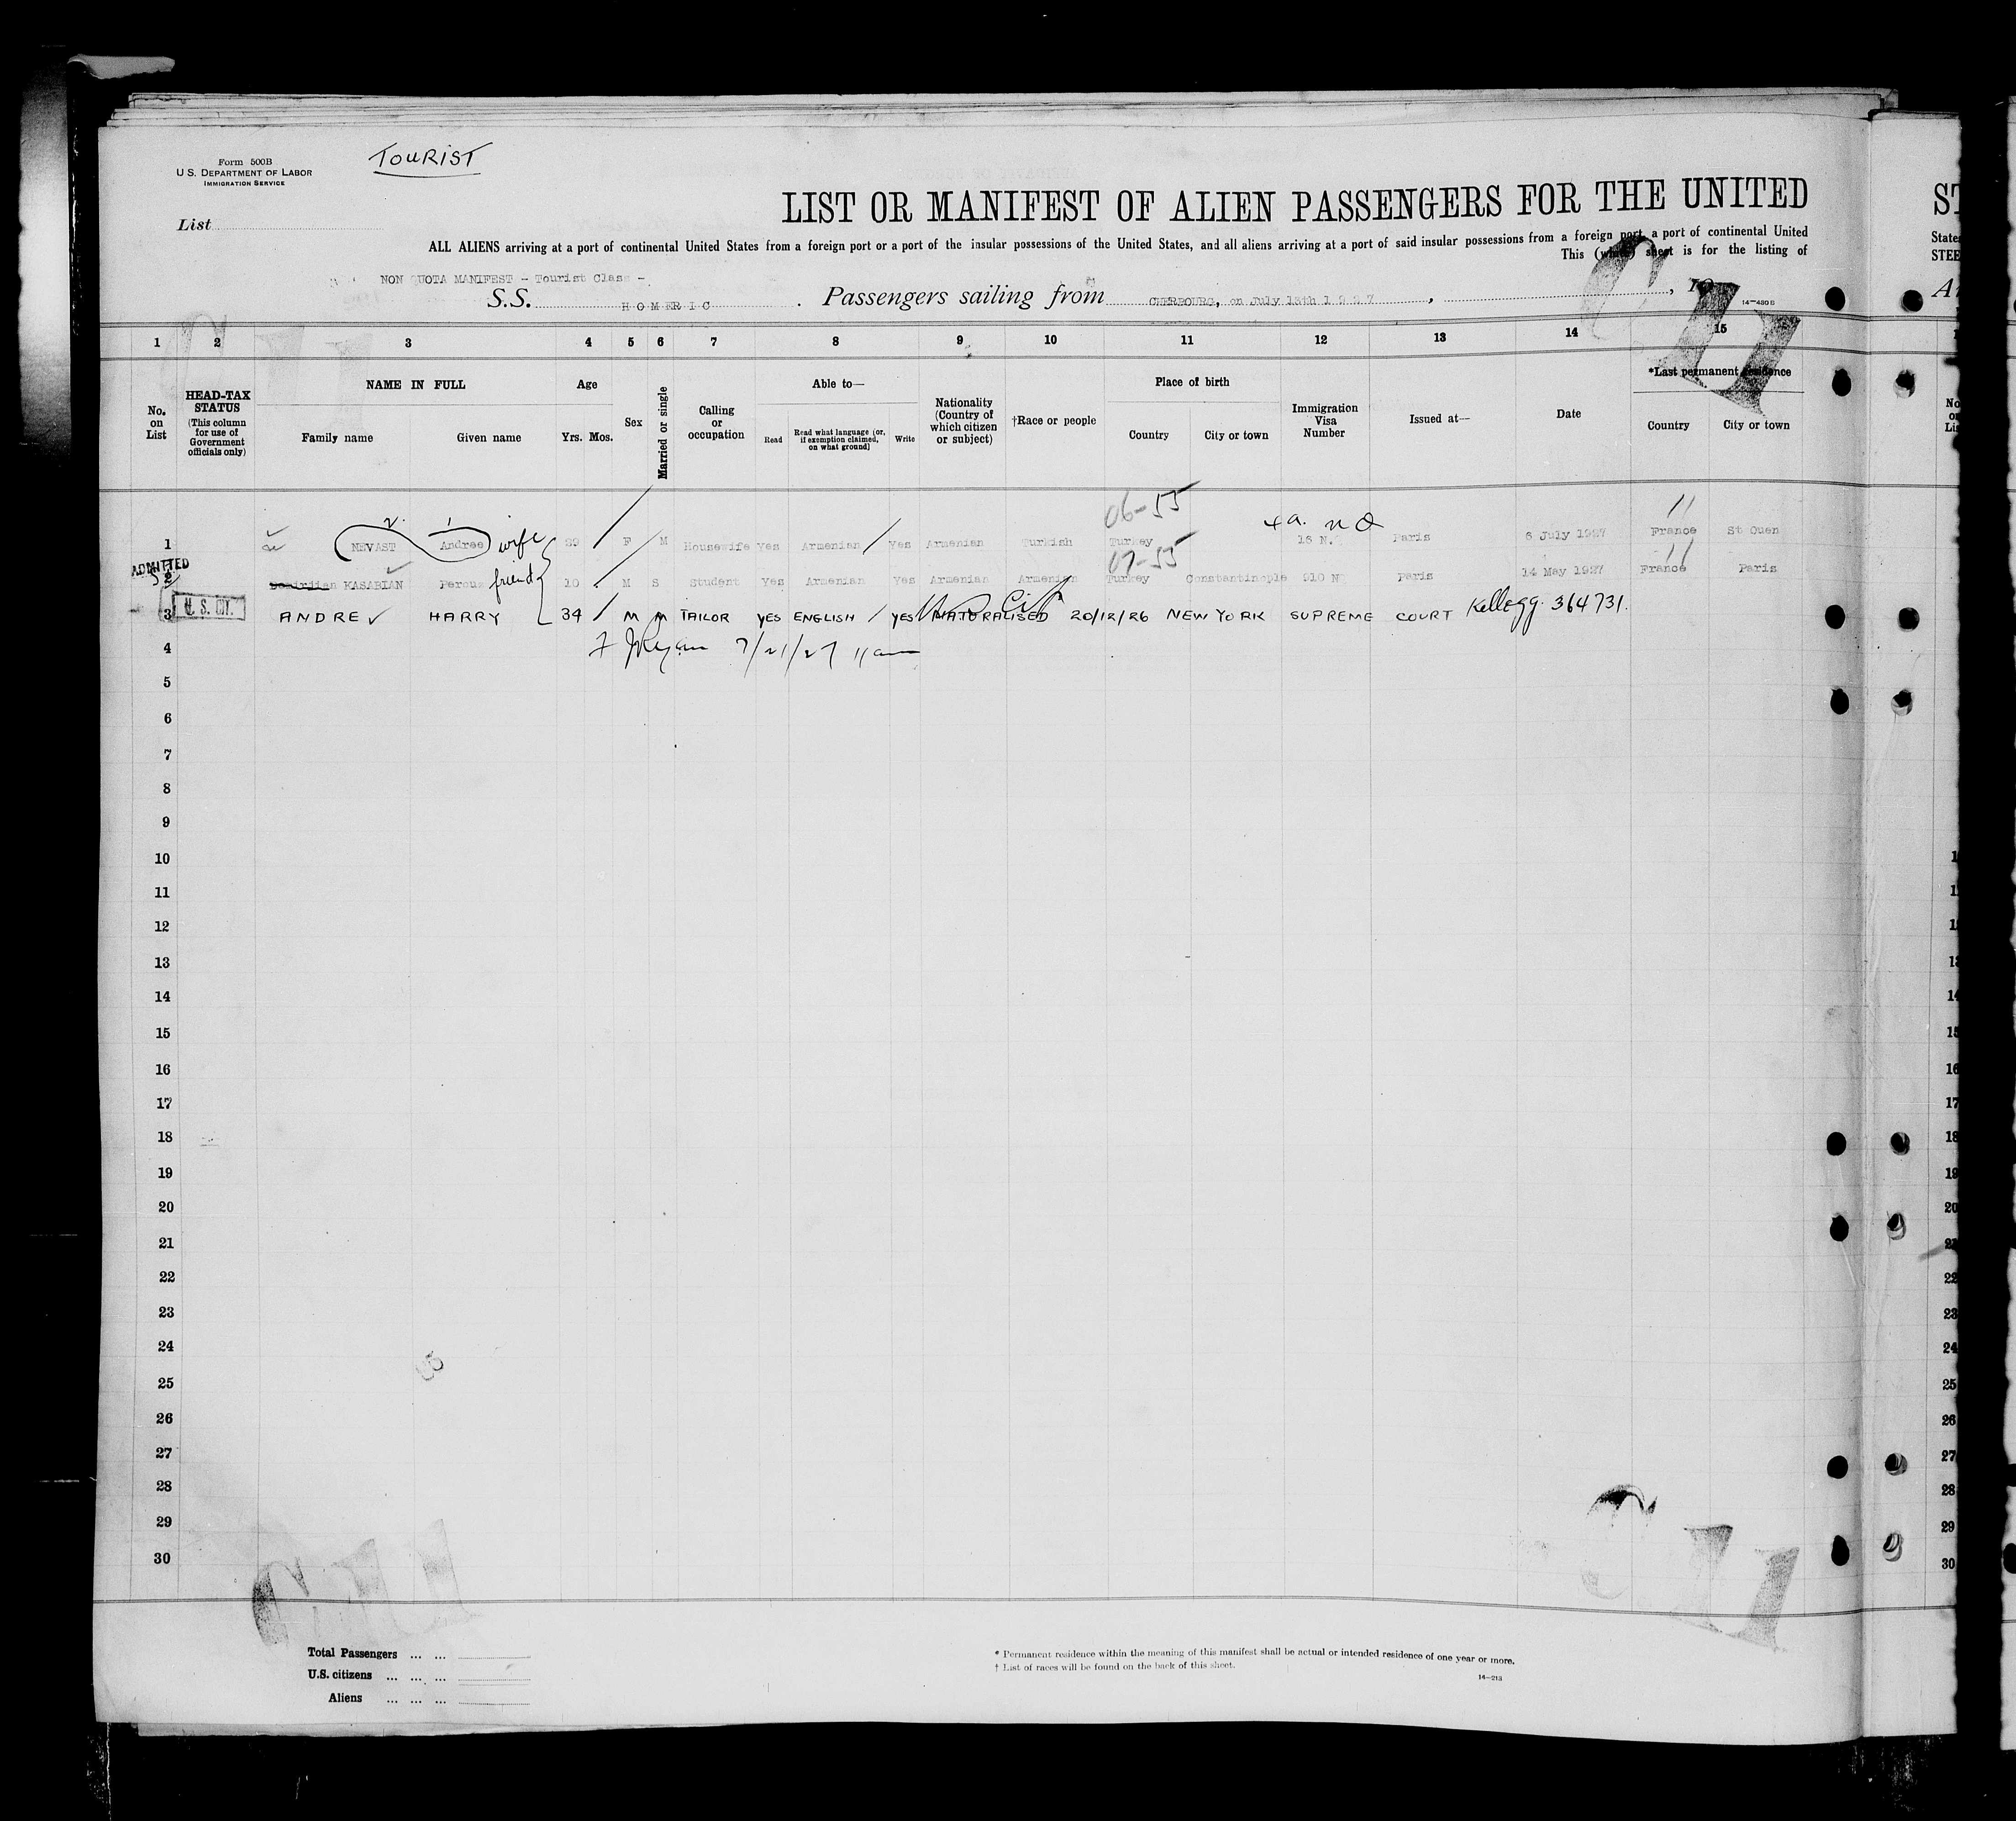 Form 500B
U S. DEPARTMENT OF LABOR
IMMIGRATION SERVICE
TOURIST
List
LIST OR MANIFEST OF ALIEN PASSENGERS FOR THE UNITED
ST
ALL ALIENS arriving at a port of continental United States from a foreign port or a port of the insular possessions of the United States, and all aliens arriving at a port of said insular possessions from a foreign port, a port of continental United
State
This (white) sheet is for the listing of
STEE
NON QUOTA MANIFEST - Tourist Class -
S.S. HOMERIC. Passengers sailing from CHERBOURG, on July 13th 1927, , 19
14-430 B
1 2 3 4 5 6 7 8 9 10 11 12 13 14 15
No. on List
HEAD-TAX STATUS
(This column for use of Government officials only)
NAME IN FULL
Family name Given name
Age
Yrs. Mos.
Sex
Married or single
Calling or occupation
Able to—
Read
Read what language (or, if exemption claimed, on what ground)
Write
Nationality (Country of which citizen or subject)
†Race or people
Place of birth
Country City or town
Immigration Visa Number
Issued at—
Date
*Last permanent residence
Country City or town
06-55
2. 1
1 NEVAST Andree wife 29 F M Housewife Yes Armenian Yes Armenian Turkish Turkey 18 N. Paris 8 July 1927 France St Ouen
ADMITTED
07-55
2 KASABIAN friend 10 M S Student Yes Armenian Yes Armenian Armenian Turkey Constantinople 910 N Paris 14 May 1927 France Paris
U. S. CIT.
3 ANDRE HARRY 34 M M TAILOR YES ENGLISH YES NATURALISED 20/12/26 NEW YORK SUPREME COURT Kellogg. 364731.
4 7/21/27 11 am
5
6
7
8
9
10
11
12
13
14
15
16
17
18
19
20
21
22
23
24
25
26
27
28
29
30
Total Passengers ... ...
U.S. citizens ... ... ...
Aliens ... ... ...
* Permanent residence within the meaning of this manifest shall be actual or intended residence of one year or more.
† List of races will be found on the back of this sheet.
14-213